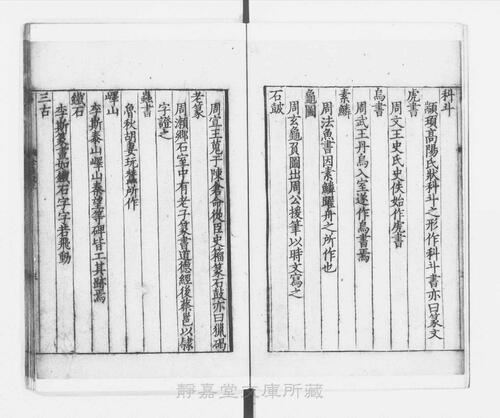 科斗
顓頊高陽氏狀科斗之形作科斗書亦曰篆文
虎書
周文王史氏史佚始作虎書
烏書
周武王丹烏入室遂作烏書焉
素鱗
周法魚書因素鱗躍舟之所作也
龜圖
周玄龜負圖出周公援筆以時文寫之
石鼓
周宣王蒐于陳倉命從臣史籀篆石鼓亦曰獵碣
老篆
周瀨鄉石室中有老子篆書道德經後蔡邕以隸
字證之
蟲書
魯秋胡妻玩蠶所作
嶧山
李斯泰山嶧山秦望等碑皆工其跡焉
鐵石
李斯篆書如鐵石字字若飛動
三古
靜嘉堂文庫所藏